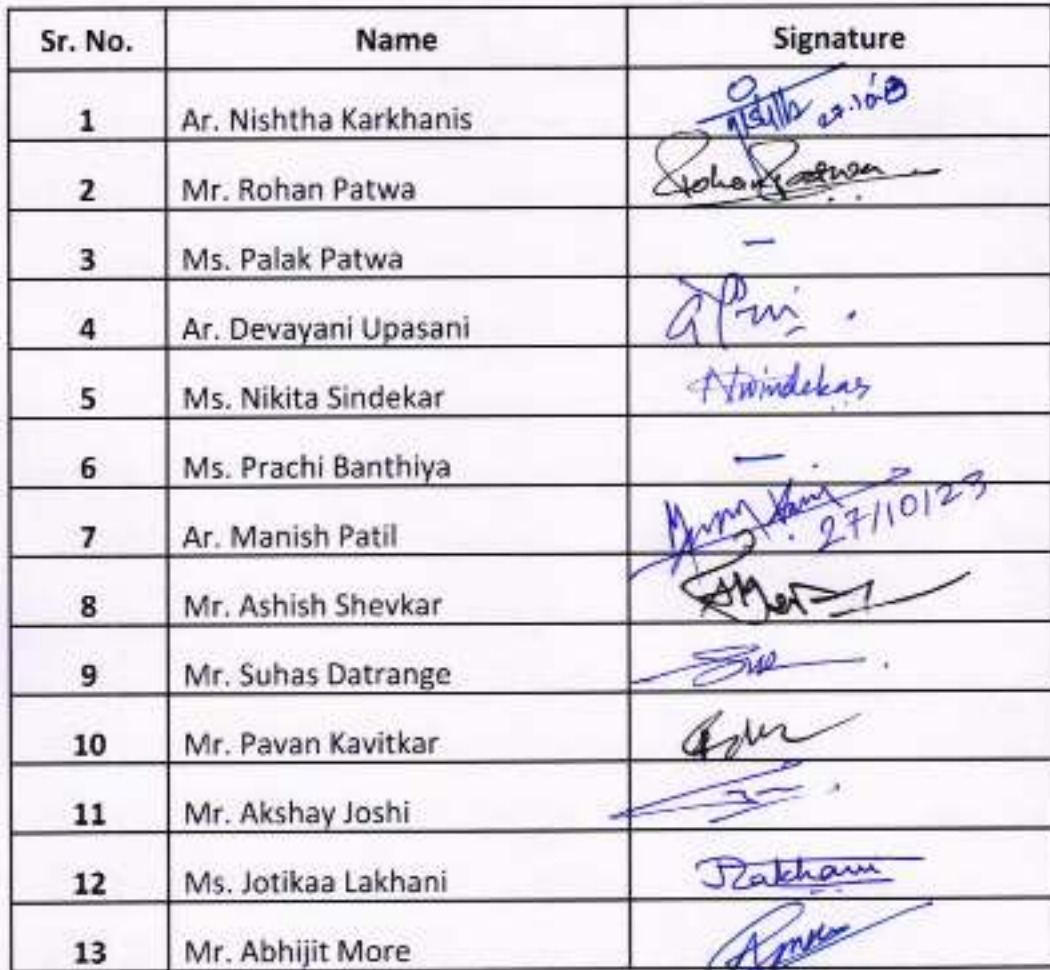 Sr. No. Name Signature
1 Ar. Nishtha Karkhanis
2 Mr. Rohan Patwa Rohan Patwa
3 Ms. Palak Patwa –
4 Ar. Devayani Upasani
5 Ms. Nikita Sindekar
6 Ms. Prachi Banthiya –
7 Ar. Manish Patil 27/10/23
8 Mr. Ashish Shevkar
9 Mr. Suhas Datrange
10 Mr. Pavan Kavitkar
11 Mr. Akshay Joshi
12 Ms. Jotikaa Lakhani
13 Mr. Abhijit More